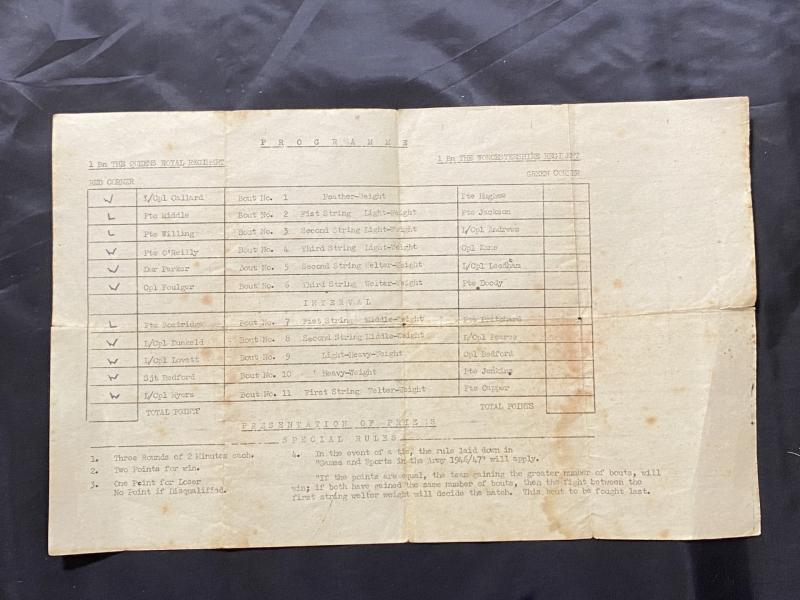 PROGRAMME
1 Bn THE QUEENS ROYAL REGIMENT 1 Bn THE WORCESTERSHIRE REGIMENT
RED CORNER GREEN CORNER
W L/Cpl Callard Bout No. 1 Feather-Weight Pte Hughes
L Pte Middle Bout No. 2 Fist String Light-Weight Pte Jackson
L Pte Willing Bout No. 3 Second String Light-Weight L/Cpl Andrews
W Pte O'Reilly Bout No. 4 Third String Light-Weight Cpl Kane
W Dmr Parker Bout No. 5 Second String Welter-Weight L/Cpl Leedham
W Cpl Foulger Bout No. 6 Third String Welter-Weight Pte Doody
INTERVAL
L Pte Bout No. 7 Fist String Middle-Weight Pte Pritchard
W L/Cpl Dunkeld Bout No. 8 Second String Middle-Weight L/Cpl Pearce
W L/Cpl Lovett Bout No. 9 Light-Heavy-Weight Cpl Bedford
W Sjt Bedford Bout No. 10 Heavy-Weight Pte Jenkins
W L/Cpl Myers Bout No. 11 First String Welter-Weight Pte Cupper
TOTAL POINTS TOTAL POINTS
PRESENTATION OF PRIZES
SPECIAL RULES
1. Three Rounds of 2 Minutes each.
2. Two Points for win.
3. One Point for Loser
No Point if Disqualified.
4. In the event of a tie, the rule laid down in
"Games and Sports in the Army 1946/47" will apply.
"If the points are equal, the team gaining the greater number of bouts, will
win; if both have gained the same number of bouts, then the fight between the
first string welter weight will decide the match. This bout to be fought last.